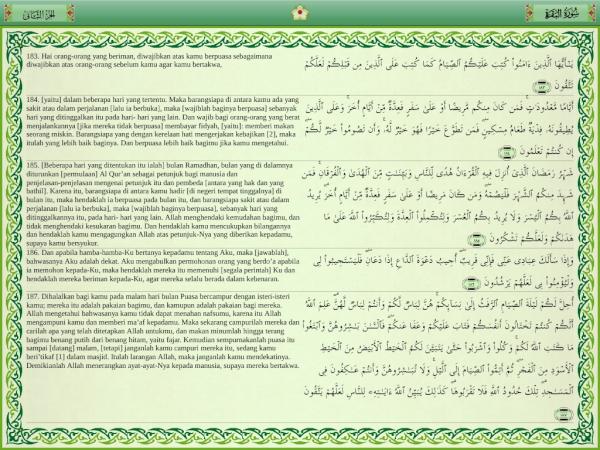 الجزء الثاني
سورة البقرة
183. Hai orang-orang yang beriman, diwajibkan atas kamu berpuasa sebagaimana
diwajibkan atas orang-orang sebelum kamu agar kamu bertakwa,
يَـٰٓأَيُّهَا ٱلَّذِينَ ءَامَنُوا۟ كُتِبَ عَلَيْكُمُ ٱلصِّيَامُ كَمَا كُتِبَ عَلَى ٱلَّذِينَ مِن قَبْلِكُمْ لَعَلَّكُمْ
تَتَّقُونَ ١٨٣
184. [yaitu] dalam beberapa hari yang tertentu. Maka barangsiapa di antara kamu ada yang
sakit atau dalam perjalanan [lalu ia berbuka], maka [wajiblah baginya berpuasa] sebanyak
hari yang ditinggalkan itu pada hari- hari yang lain. Dan wajib bagi orang-orang yang berat
menjalankannya [jika mereka tidak berpuasa] membayar fidyah, [yaitu]: memberi makan
seorang miskin. Barangsiapa yang dengan kerelaan hati mengerjakan kebajikan [2], maka
itulah yang lebih baik baginya. Dan berpuasa lebih baik bagimu jika kamu mengetahui.
أَيَّامًا مَّعْدُودَٰتٍ ۚ فَمَن كَانَ مِنكُم مَّرِيضًا أَوْ عَلَىٰ سَفَرٍ فَعِدَّةٌ مِّنْ أَيَّامٍ أُخَرَ ۚ وَعَلَى ٱلَّذِينَ
يُطِيقُونَهُۥ فِدْيَةٌ طَعَامُ مِسْكِينٍ ۖ فَمَن تَطَوَّعَ خَيْرًا فَهُوَ خَيْرٌ لَّهُۥ ۚ وَأَن تَصُومُوا۟ خَيْرٌ لَّكُمْ ۖ
إِن كُنتُمْ تَعْلَمُونَ ١٨٤
185. [Beberapa hari yang ditentukan itu ialah] bulan Ramadhan, bulan yang di dalamnya
diturunkan [permulaan] Al Qur'an sebagai petunjuk bagi manusia dan
penjelasan-penjelasan mengenai petunjuk itu dan pembeda [antara yang hak dan yang
bathil]. Karena itu, barangsiapa di antara kamu hadir [di negeri tempat tinggalnya] di
bulan itu, maka hendaklah ia berpuasa pada bulan itu, dan barangsiapa sakit atau dalam
perjalanan [lalu ia berbuka], maka [wajiblah baginya berpuasa], sebanyak hari yang
ditinggalkannya itu, pada hari- hari yang lain. Allah menghendaki kemudahan bagimu, dan
tidak menghendaki kesukaran bagimu. Dan hendaklah kamu mencukupkan bilangannya
dan hendaklah kamu mengagungkan Allah atas petunjuk-Nya yang diberikan kepadamu,
supaya kamu bersyukur.
شَهْرُ رَمَضَانَ ٱلَّذِىٓ أُنزِلَ فِيهِ ٱلْقُرْءَانُ هُدًى لِّلنَّاسِ وَبَيِّنَـٰتٍ مِّنَ ٱلْهُدَىٰ وَٱلْفُرْقَانِ ۚ فَمَن
شَهِدَ مِنكُمُ ٱلشَّهْرَ فَلْيَصُمْهُ ۖ وَمَن كَانَ مَرِيضًا أَوْ عَلَىٰ سَفَرٍ فَعِدَّةٌ مِّنْ أَيَّامٍ أُخَرَ ۗ يُرِيدُ
ٱللَّهُ بِكُمُ ٱلْيُسْرَ وَلَا يُرِيدُ بِكُمُ ٱلْعُسْرَ وَلِتُكْمِلُوا۟ ٱلْعِدَّةَ وَلِتُكَبِّرُوا۟ ٱللَّهَ عَلَىٰ مَا
هَدَىٰكُمْ وَلَعَلَّكُمْ تَشْكُرُونَ ١٨٥
186. Dan apabila hamba-hamba-Ku bertanya kepadamu tentang Aku, maka [jawablah],
bahwasanya Aku adalah dekat. Aku mengabulkan permohonan orang yang berdo'a apabila
ia memohon kepada-Ku, maka hendaklah mereka itu memenuhi [segala perintah] Ku dan
hendaklah mereka beriman kepada-Ku, agar mereka selalu berada dalam kebenaran.
وَإِذَا سَأَلَكَ عِبَادِى عَنِّى فَإِنِّى قَرِيبٌ ۖ أُجِيبُ دَعْوَةَ ٱلدَّاعِ إِذَا دَعَانِ ۖ فَلْيَسْتَجِيبُوا۟ لِى
وَلْيُؤْمِنُوا۟ بِى لَعَلَّهُمْ يَرْشُدُونَ ١٨٦
187. Dihalalkan bagi kamu pada malam hari bulan Puasa bercampur dengan isteri-isteri
kamu; mereka itu adalah pakaian bagimu, dan kamupun adalah pakaian bagi mereka.
Allah mengetahui bahwasanya kamu tidak dapat menahan nafsumu, karena itu Allah
mengampuni kamu dan memberi ma'af kepadamu. Maka sekarang campurilah mereka dan
carilah apa yang telah ditetapkan Allah untukmu, dan makan minumlah hingga terang
bagimu benang putih dari benang hitam, yaitu fajar. Kemudian sempurnakanlah puasa itu
sampai [datang] malam, [tetapi] janganlah kamu campuri mereka itu, sedang kamu
beri'tikaf [1] dalam masjid. Itulah larangan Allah, maka janganlah kamu mendekatinya.
Demikianlah Allah menerangkan ayat-ayat-Nya kepada manusia, supaya mereka bertakwa.
أُحِلَّ لَكُمْ لَيْلَةَ ٱلصِّيَامِ ٱلرَّفَثُ إِلَىٰ نِسَآئِكُمْ ۚ هُنَّ لِبَاسٌ لَّكُمْ وَأَنتُمْ لِبَاسٌ لَّهُنَّ ۗ عَلِمَ ٱللَّهُ
أَنَّكُمْ كُنتُمْ تَخْتَانُونَ أَنفُسَكُمْ فَتَابَ عَلَيْكُمْ وَعَفَا عَنكُمْ ۖ فَٱلْـَٔـٰنَ بَـٰشِرُوهُنَّ وَٱبْتَغُوا۟
مَا كَتَبَ ٱللَّهُ لَكُمْ ۚ وَكُلُوا۟ وَٱشْرَبُوا۟ حَتَّىٰ يَتَبَيَّنَ لَكُمُ ٱلْخَيْطُ ٱلْأَبْيَضُ مِنَ ٱلْخَيْطِ
ٱلْأَسْوَدِ مِنَ ٱلْفَجْرِ ۖ ثُمَّ أَتِمُّوا۟ ٱلصِّيَامَ إِلَى ٱلَّيْلِ ۚ وَلَا تُبَـٰشِرُوهُنَّ وَأَنتُمْ عَـٰكِفُونَ فِى
ٱلْمَسَـٰجِدِ ۗ تِلْكَ حُدُودُ ٱللَّهِ فَلَا تَقْرَبُوهَا ۗ كَذَٰلِكَ يُبَيِّنُ ٱللَّهُ ءَايَـٰتِهِۦ لِلنَّاسِ لَعَلَّهُمْ يَتَّقُونَ
١٨٧